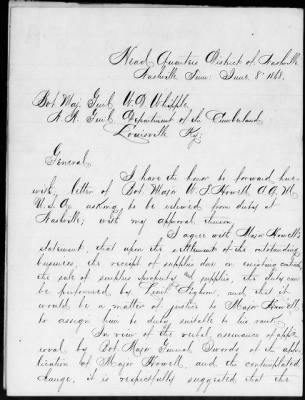 Head Quarters District of Nashville
Nashville Tenn: June 8" 1868.
Bvt Maj. Genl W. D. Whipple
A. A. Genl. Department of the Cumberland
Louisville Ky.
General
I have the honor to forward here-
with, letter of Bvt Major W. T. Howell A. Q. M.
U. S. A. asking to be relieved from duty at
Nashville, with my approval thereon.
I agree with Major Howell's
statement, that upon the settlement of the outstanding
business, the receipt of supplies due on existing contracts
the sale of surplus property and supplies, the duties can
be performed by Lieut and that it
would be a matter of justice to Major Howell
to assign him to duty suitable to his rank.
In view of the verbal assurance of app-
roval by Bvt. Major General Swords of the app-
lication of Major Howell, and the contemplated
change, it is respectfully suggested that the